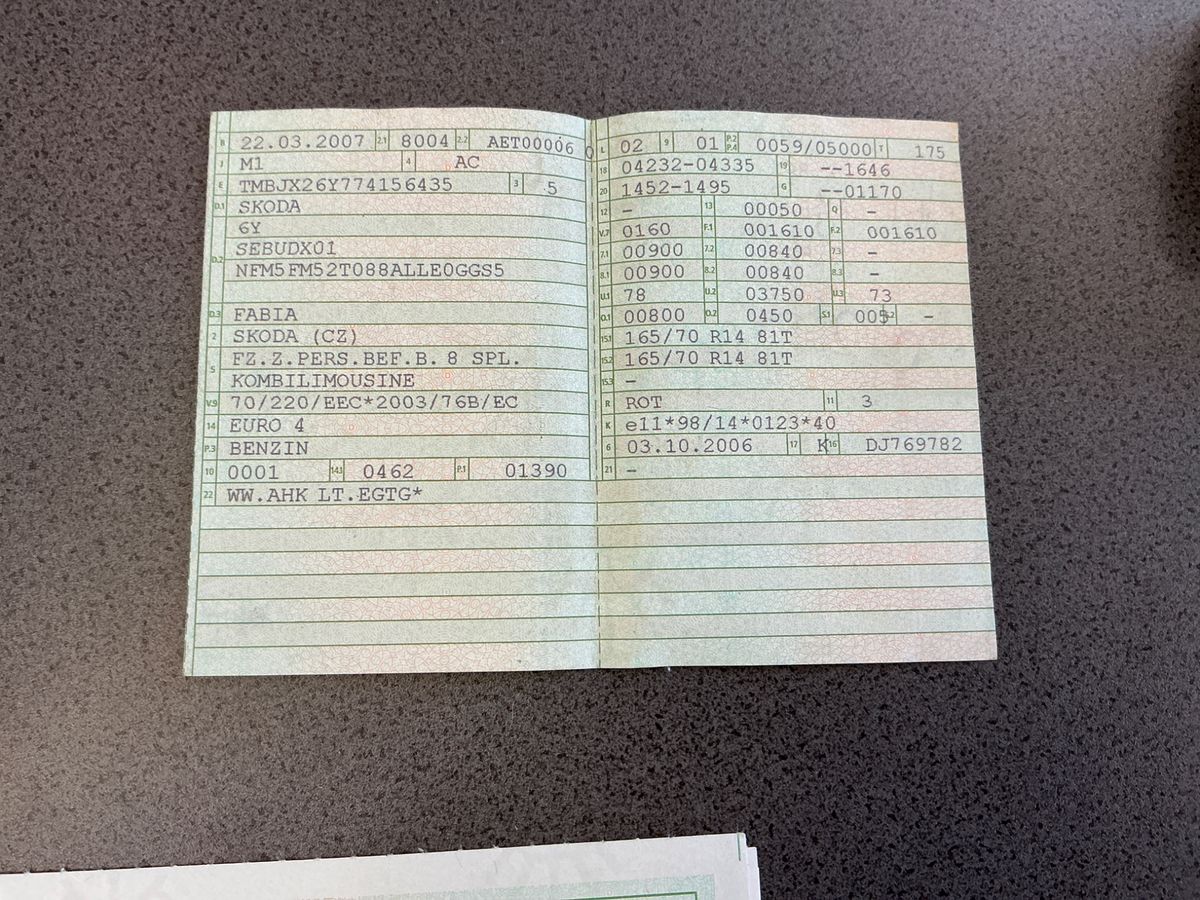 B 22.03.2007 2.1 8004 2.2 AET00006 0
J M1 4 AC
E TMBJX26Y774156435 3 5
D.1 SKODA
6Y
D.2 SEBUDX01
NFM5FM52T088ALLE0GGS5
D.3 FABIA
2 SKODA (CZ)
5 FZ.Z.PERS.BEF.B. 8 SPL.
KOMBILIMOUSINE
V.9 70/220/EEC*2003/76B/EC
14 EURO 4
P.3 BENZIN
10 0001 14.1 0462 P.1 01390
22 WW.AHK LT.EGTG*
L 02 9 01 P.2 P.4 0059/05000 T 175
18 04232-04335 19 --1646
20 1452-1495 G --01170
12 - 13 00050 Q -
V.7 0160 F.1 001610 F.2 001610
7.1 00900 7.2 00840 7.3 -
8.1 00900 8.2 00840 8.3 -
U.1 78 U.2 03750 U.3 73
O.1 00800 O.2 0450 S.1 005 S.2 -
15.1 165/70 R14 81T
15.2 165/70 R14 81T
15.3 -
R ROT 11 3
K e11*98/14*0123*40
6 03.10.2006 17 K 16 DJ769782
21 -